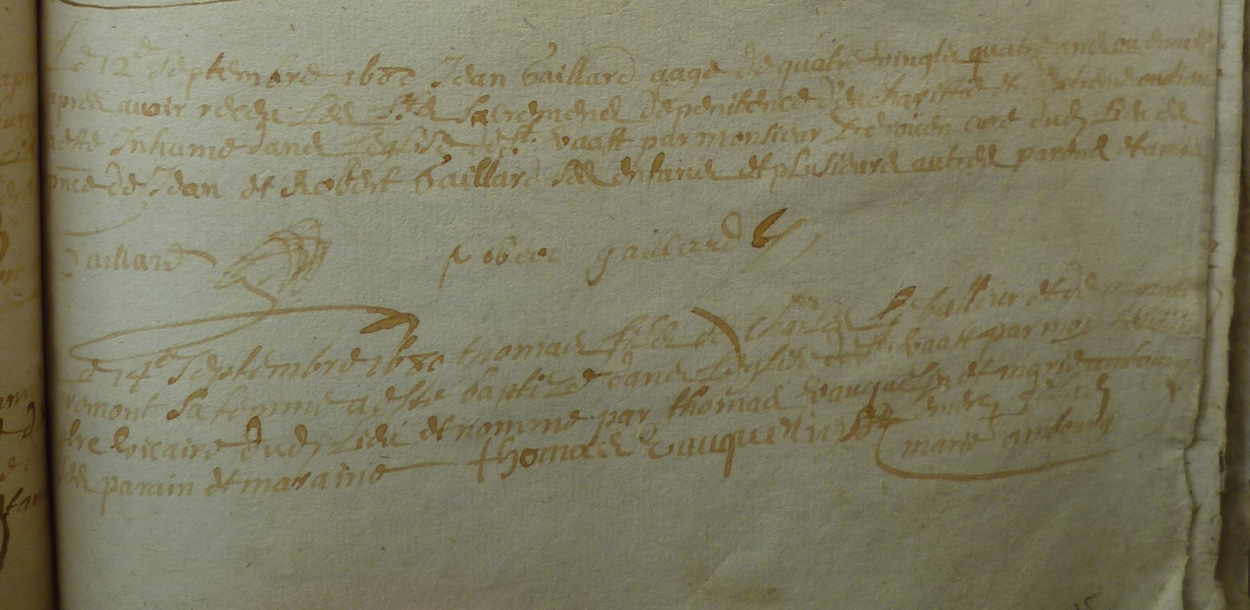 Le 12e septembre 1680 Jean Gaillard aagé de quatre vingts quatre ans ou environ
apres avoir receu Les Sts Sacremens de penitence d'eucharistie et d'extreme onction
a esté Inhumé dans Leglise de St. vaast par monsieur curé dud. Lieu en
pnce de Jean et Robert Gaillard ses enfans et plusieurs autres parens et amis
Gaillard Robert gaillard
Le 14e Septembre 1680 thomas fils de Charles et de
sa femme a esté baptizé dans Leglise de St. vaast par moy
vicaire dud. Lieu et nommé par thomas vauquelin et marie
ses parain et maraine thomas vauquelin marie